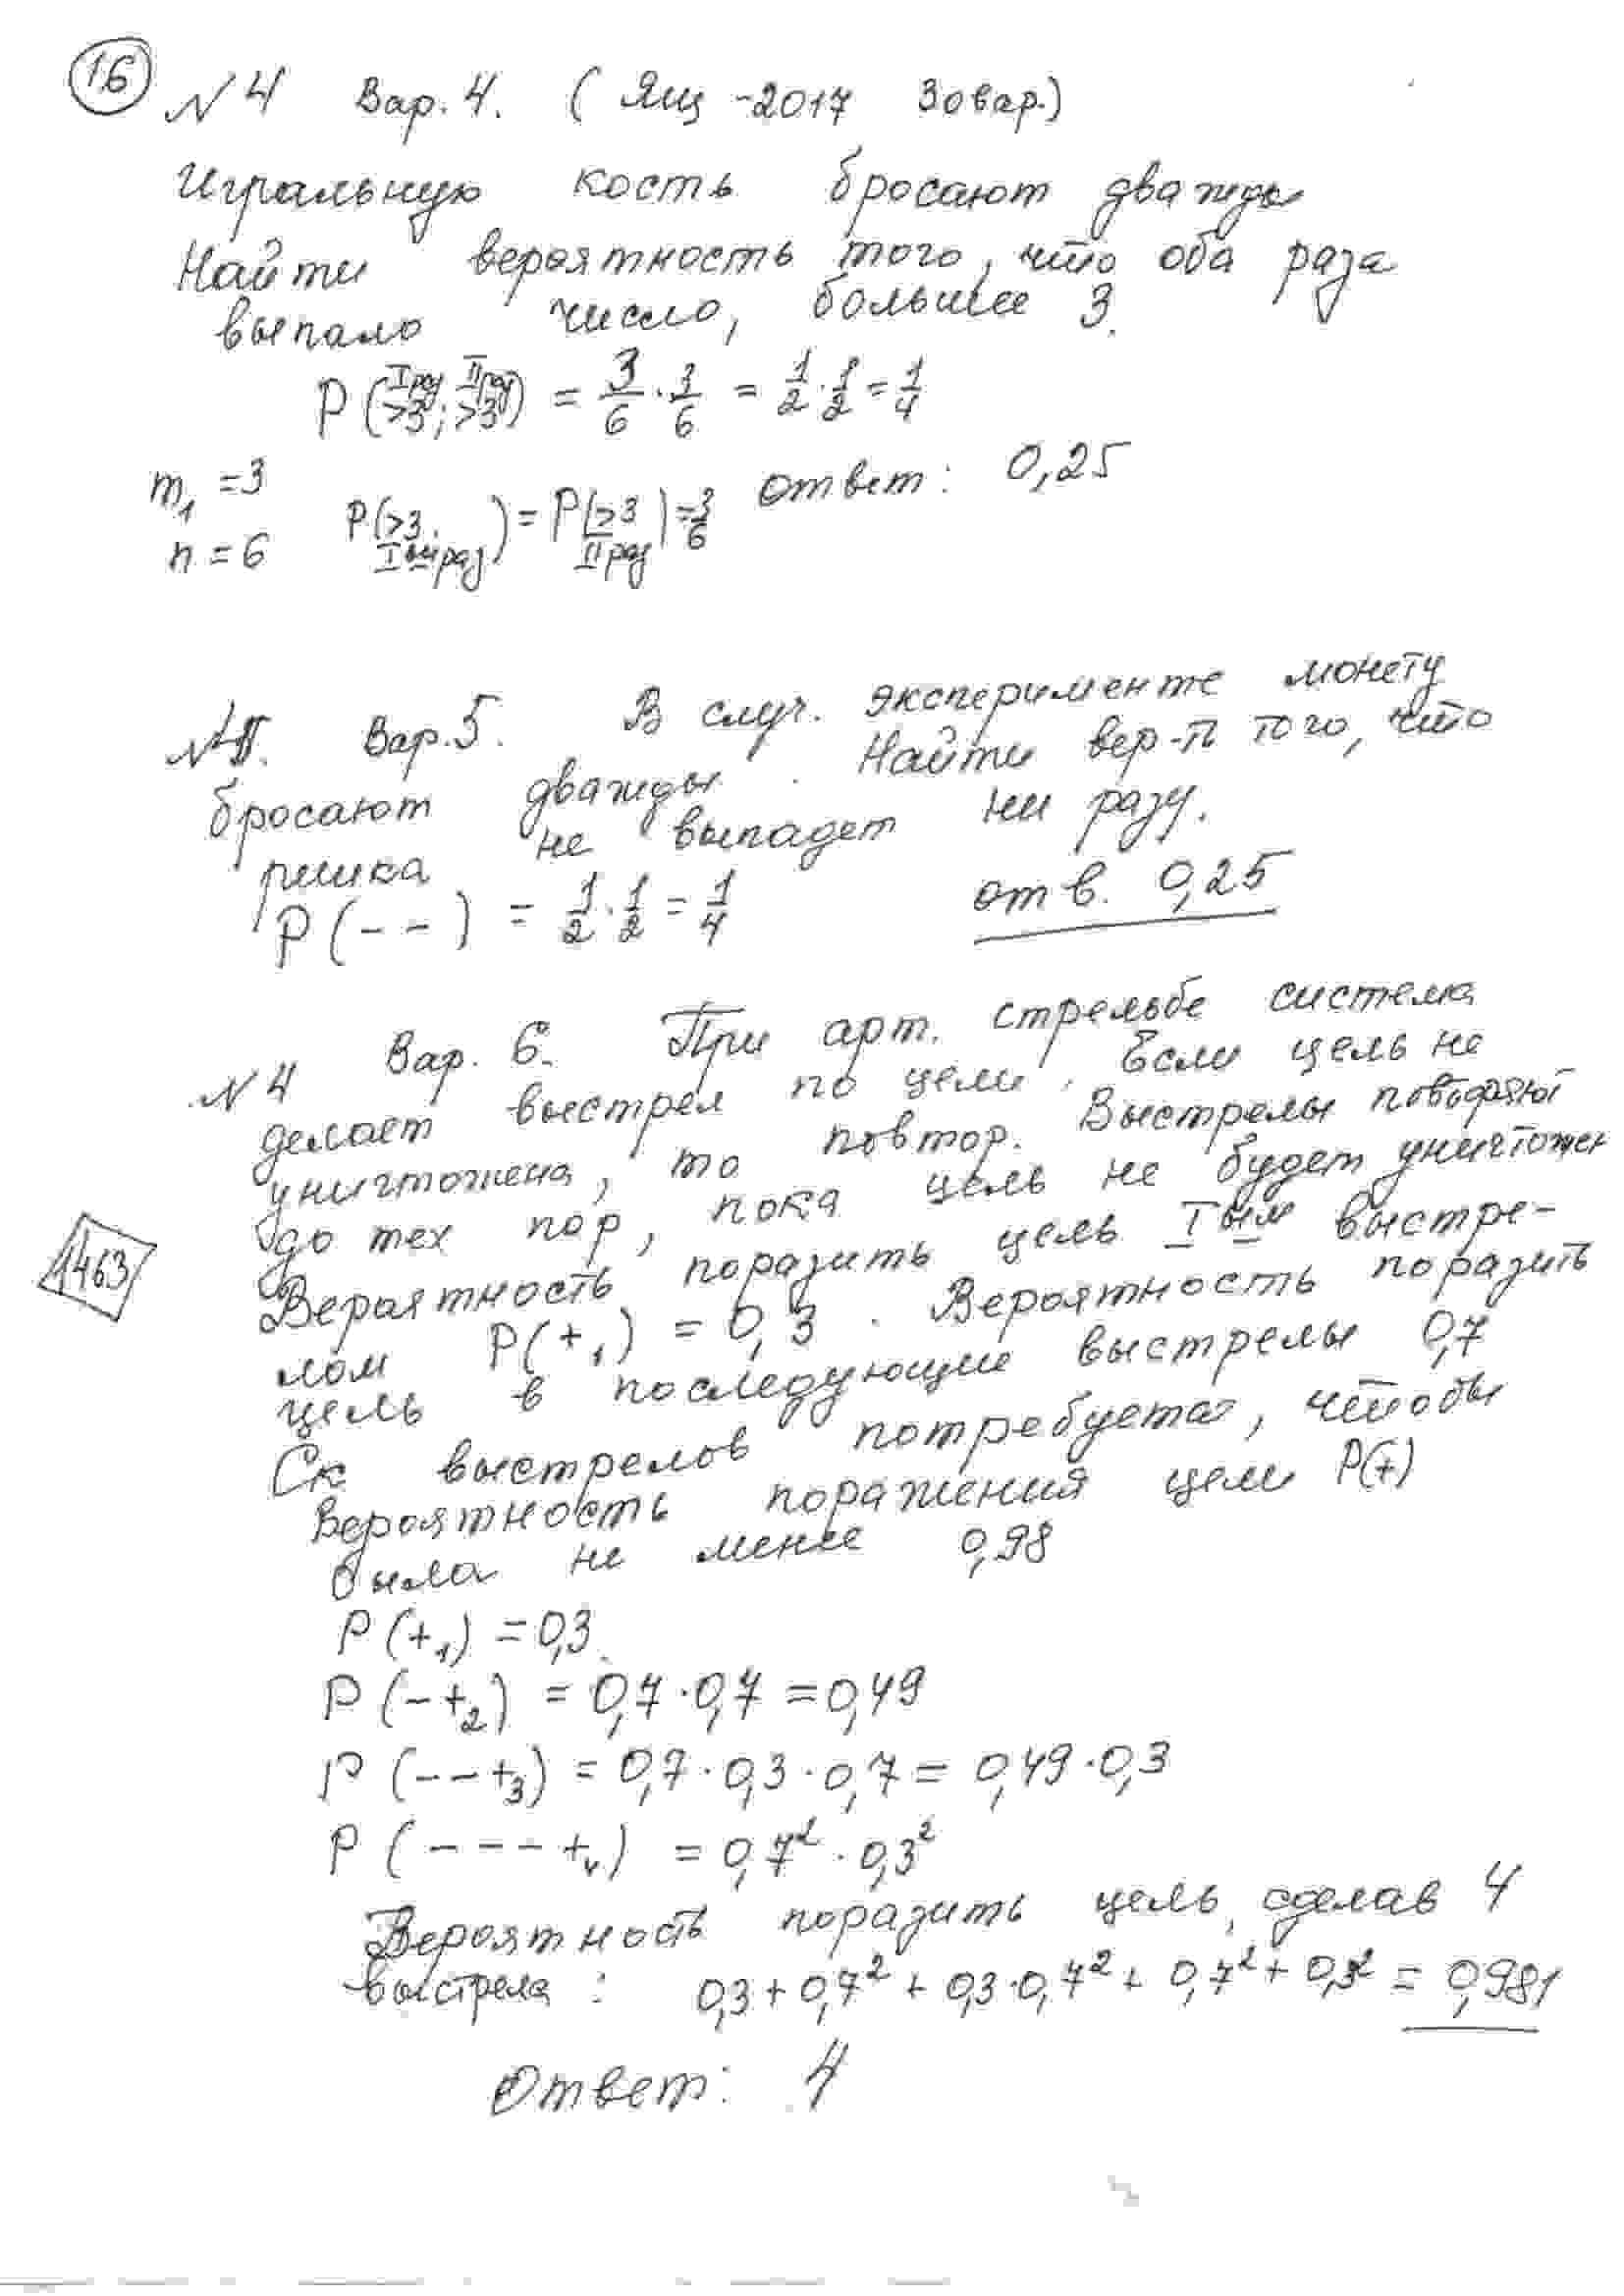 16
N 4 Вар. 4. ( Ящ -2017 30вар.)
Игральную кость бросают дважды
Найти вероятность того, что оба раза
выпало число, большее 3.
P ( I раз >3 ; II раз >3 ) = 3/6 · 3/6 = 1/2 · 1/2 = 1/4
m₁ = 3
n = 6
P(>3 I ый раз) = P(>3 II раз) = 3/6
ответ: 0,25
N4. Вар. 5. В случ. эксперименте монету
бросают дважды. Найти вер-ть того, что
решка не выпадет ни разу.
P (- -) = 1/2 · 1/2 = 1/4 отв. 0,25
N 4 Вар. 6. При арт. стрельбе система
делает выстрел по цели. Если цель не
уничтожена, то повтор. Выстрелы повторяют
до тех пор, пока цель не будет уничтожен
1463
Вероятность поразить цель I ым выстре-
лом P(+₁) = 0,3. Вероятность поразить
цель в последующие выстрелы 0,7
Ск выстрелов потребуется, чтобы
вероятность поражения цели P(+)
была не менее 0,98
P (+₁) = 0,3.
P (- +₂) = 0,7 · 0,7 = 0,49
P (- - +₃) = 0,7 · 0,3 · 0,7 = 0,49 · 0,3
P (- - - +₄) = 0,7² · 0,3²
Вероятность поразить цель, сделав 4
выстрела: 0,3 + 0,7² + 0,3 · 0,7² + 0,7² + 0,3² = 0,981
Ответ: 4